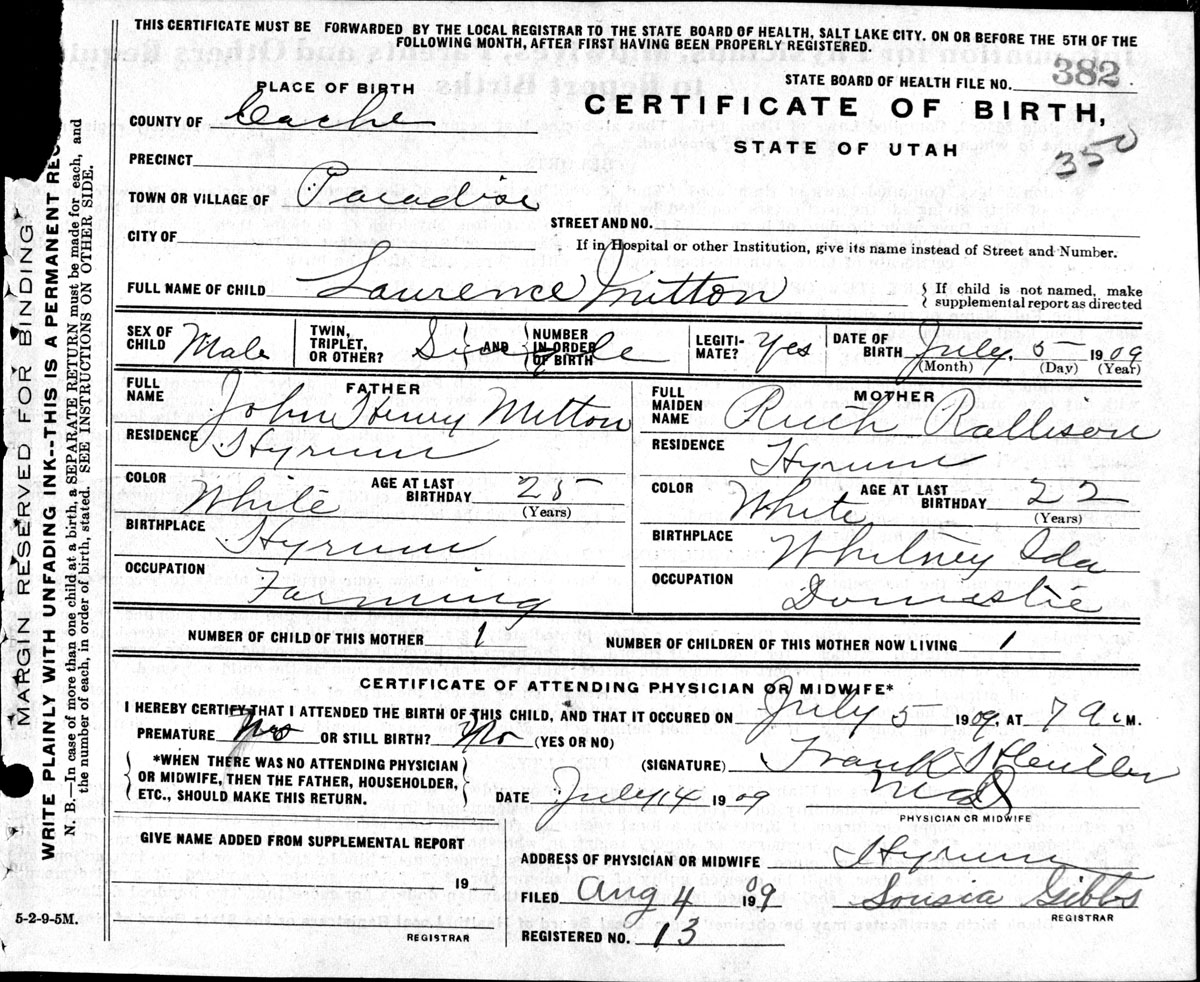 THIS CERTIFICATE MUST BE FORWARDED BY THE LOCAL REGISTRAR TO THE STATE BOARD OF HEALTH, SALT LAKE CITY. ON OR BEFORE THE 5TH OF THE
FOLLOWING MONTH, AFTER FIRST HAVING BEEN PROPERLY REGISTERED.
STATE BOARD OF HEALTH FILE NO. 382
PLACE OF BIRTH
CERTIFICATE OF BIRTH,
COUNTY OF Cache
STATE OF UTAH
350
PRECINCT
TOWN OR VILLAGE OF Paradise
STREET AND NO.
CITY OF
If in Hospital or other Institution, give its name instead of Street and Number.
FULL NAME OF CHILD Lawrence Mitton
If child is not named, make
supplemental report as directed
SEX OF CHILD Male
TWIN, TRIPLET, OR OTHER? Single AND NUMBER IN ORDER OF BIRTH
LEGITI-MATE? Yes
DATE OF BIRTH July 5 1909
(Month) (Day) (Year)
FATHER
FULL NAME John Henry Mitton
RESIDENCE Hyrum
COLOR White AGE AT LAST BIRTHDAY 25
(Years)
BIRTHPLACE Hyrum
OCCUPATION Farming
MOTHER
FULL MAIDEN NAME Ruth Rallison
RESIDENCE Hyrum
COLOR White AGE AT LAST BIRTHDAY 22
(Years)
BIRTHPLACE Whitney Ida
OCCUPATION Domestic
NUMBER OF CHILD OF THIS MOTHER 1 NUMBER OF CHILDREN OF THIS MOTHER NOW LIVING 1
CERTIFICATE OF ATTENDING PHYSICIAN OR MIDWIFE*
I HEREBY CERTIFY THAT I ATTENDED THE BIRTH OF THIS CHILD, AND THAT IT OCCURED ON July 5 1909, AT 7 a M.
PREMATURE No OR STILL BIRTH? No (YES OR NO)
*WHEN THERE WAS NO ATTENDING PHYSICIAN
OR MIDWIFE, THEN THE FATHER, HOUSEHOLDER,
ETC., SHOULD MAKE THIS RETURN.
(SIGNATURE) Frank
DATE July 14 1909
PHYSICIAN OR MIDWIFE
GIVE NAME ADDED FROM SUPPLEMENTAL REPORT
19
REGISTRAR
ADDRESS OF PHYSICIAN OR MIDWIFE Hyrum
FILED Aug 4 1909 Gibbs
REGISTRAR
REGISTERED NO. 13
5-2-9-5M.
MARGIN RESERVED FOR BINDING
WRITE PLAINLY WITH UNFADING INK--THIS IS A PERMANENT
N. B.—In case of more than one child at a birth, a SEPARATE RETURN must be made for each, and
the number of each, in order of birth, stated. SEE INSTRUCTIONS ON OTHER SIDE.